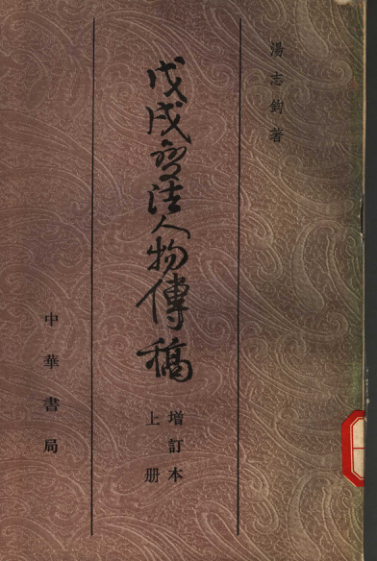 湯志鈞著
戊戌变法人物傳稿
增訂本
上册
中華書局